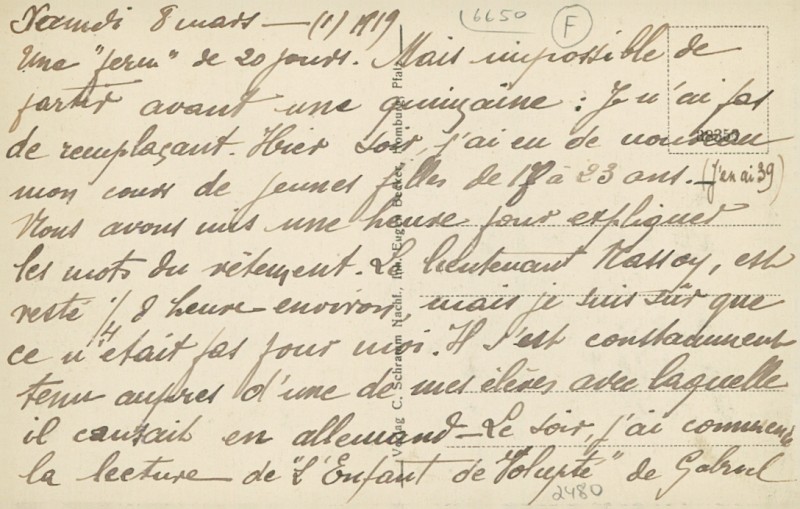 6650
F
Samedi 8 mars — (1) 1919
Une "ferm" de 20 jours. Mais impossible de
partir avant une quinzaine : Je n'ai pas
de remplaçant. Hier soir, j'ai eu de nouveau
mon cours de jeunes filles de 17 à 23 ans. — (J'en ai 39)
Nous avons mis une heure pour expliquer
les mots du vêtement. Le lieutenant Massoy, est
resté 1/4 d'heure environ, mais je suis sûr que
ce n'était pas pour moi. Il s'est constamment
tenu auprès d'une de mes élèves avec laquelle
il causait en allemand — Le soir, j'ai commencé
la lecture de "L'Enfant de Volupté" de Gabriel
2480
Verlag C. Schramm Nachf., Inh. Eugen Becker, Homburg, Pfalz